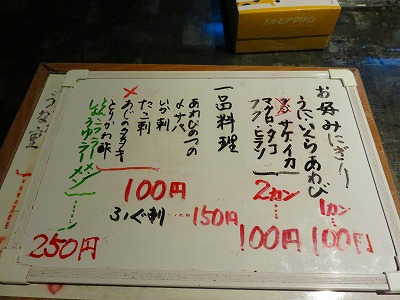 お好みにぎり
うに いくら あわび
1カン… 100円
サケ イカ
マグロ タコ
フグ ヒラソ
2カン… 100円
一品料理
あわびのつの
〆サバ
いか刺
たこ刺
あじのタタキ
とりかわ酢
100円
ふぐ刺……150円
とんこつラーメン
しょうゆラーメン……
250円
うな重